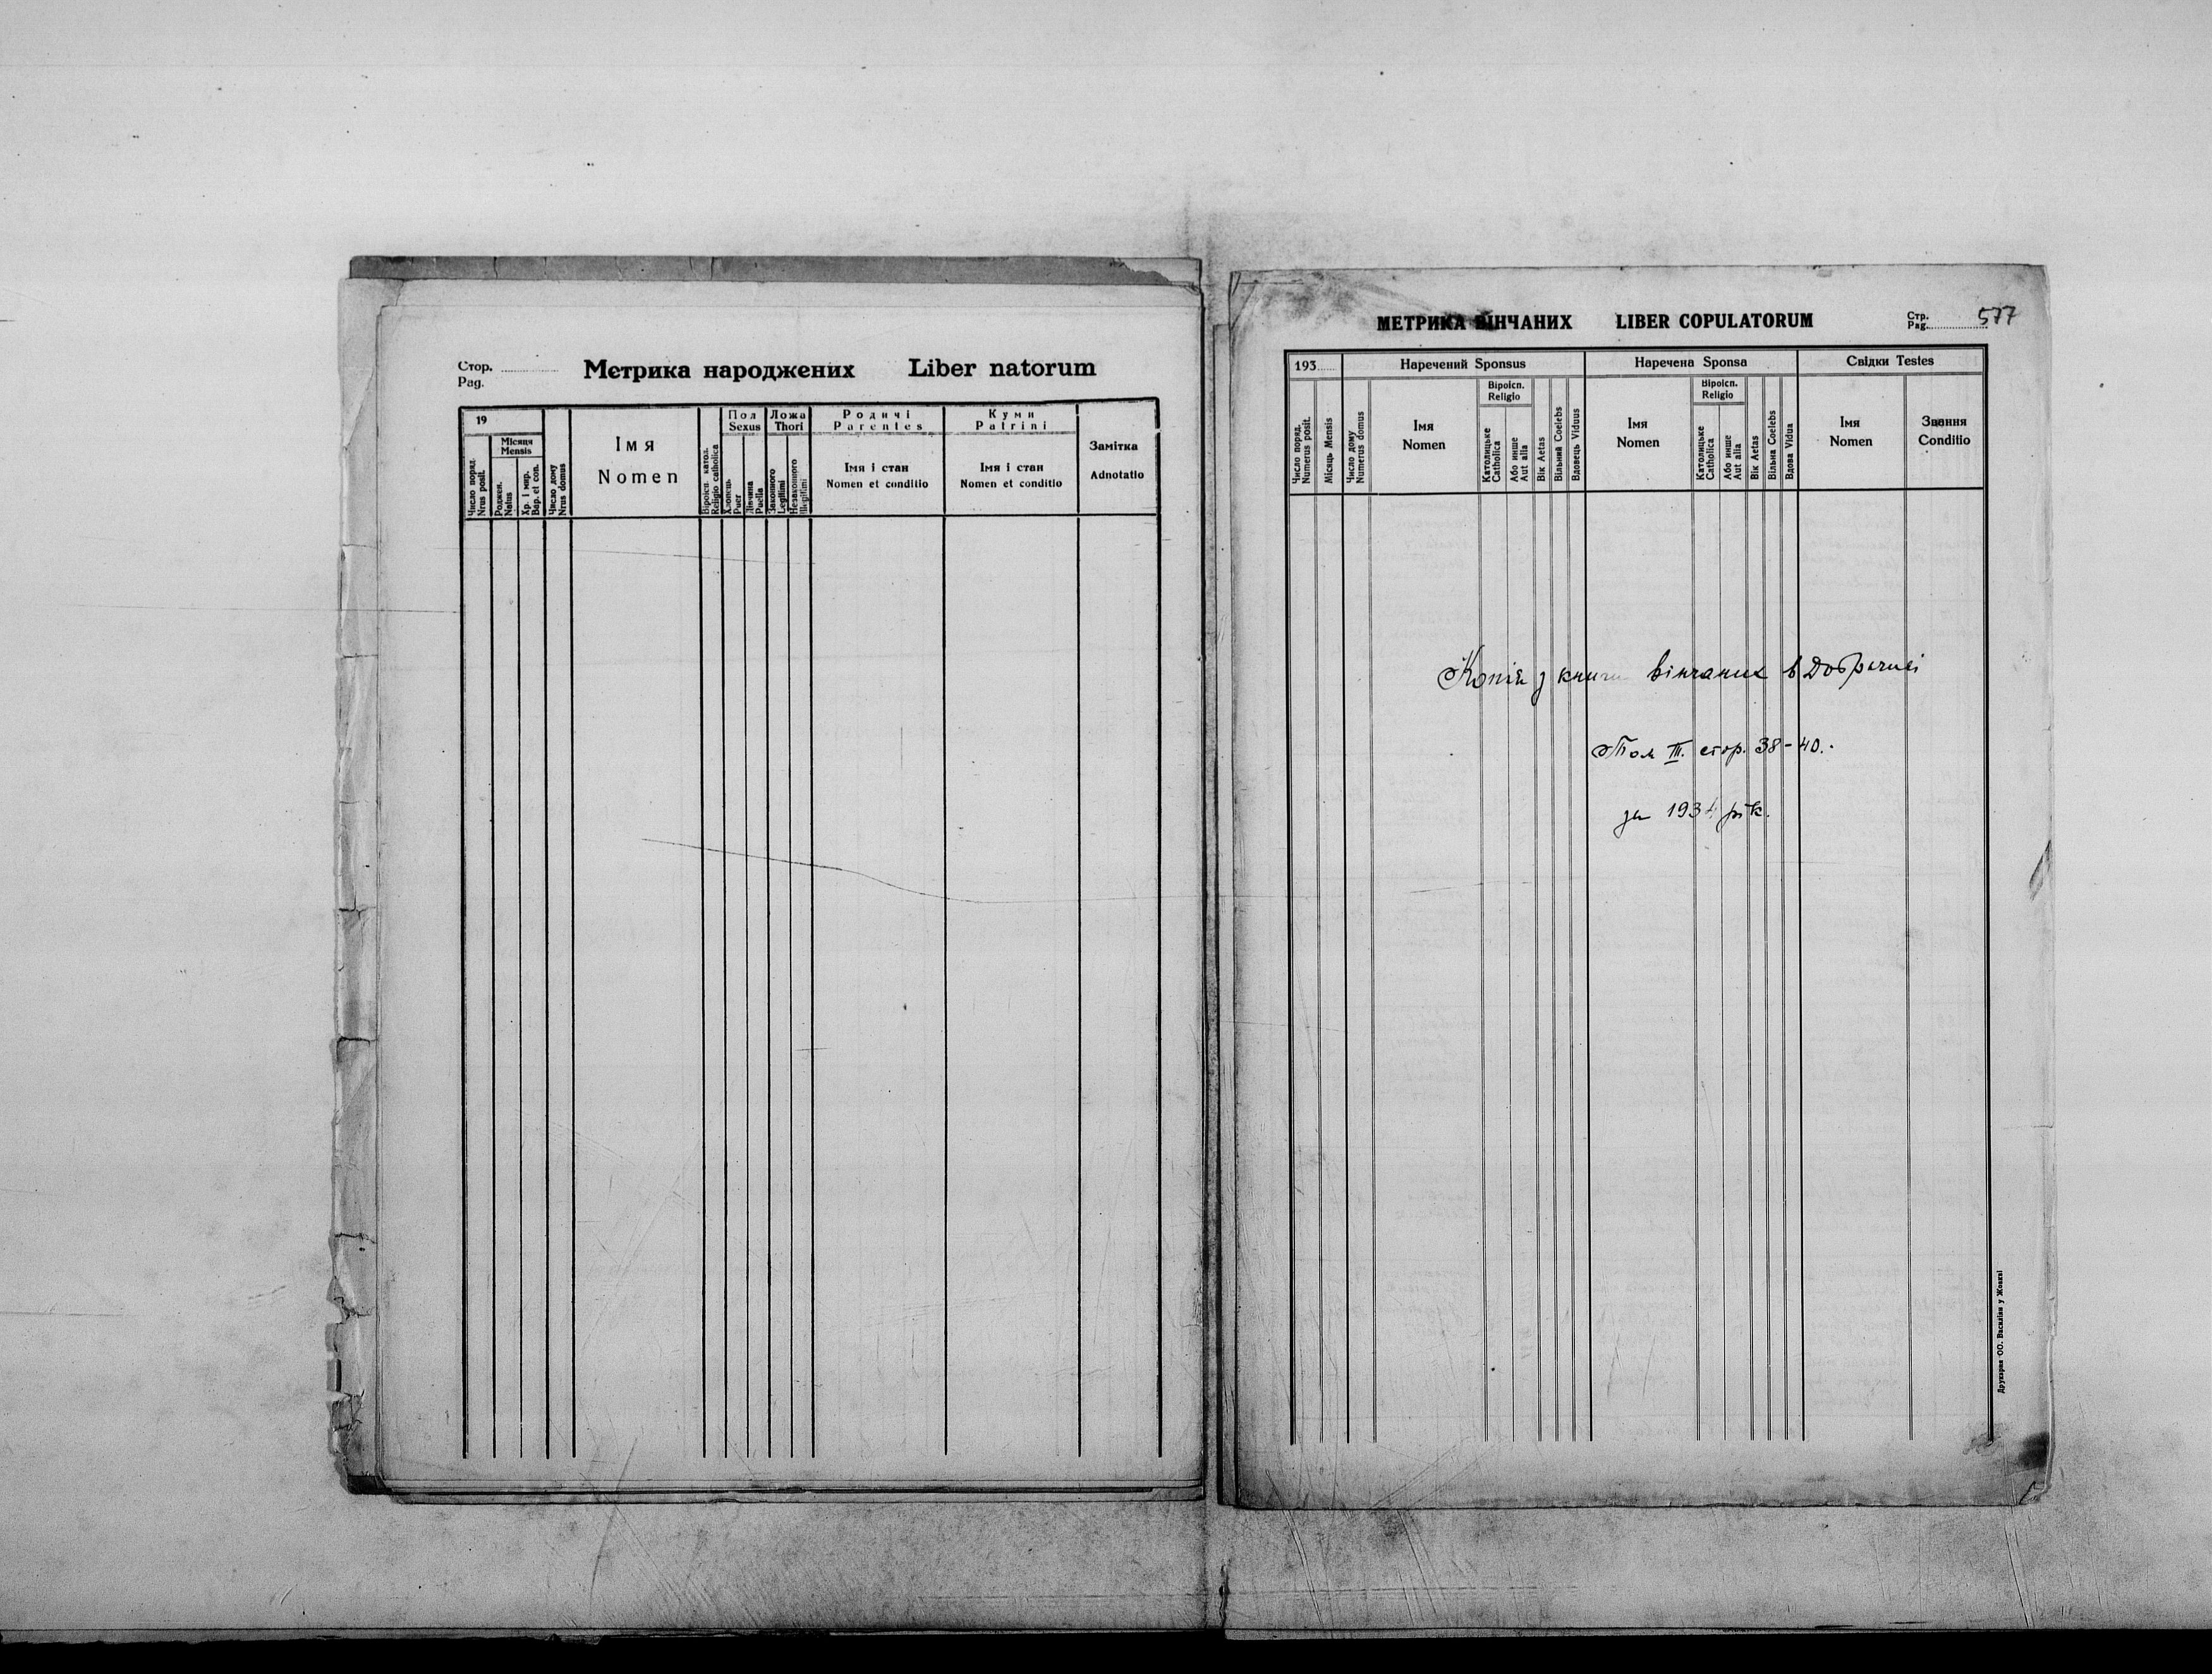 Стор.
Pag.
Метрика народжених Liber natorum
19
Місяця
Mensis
Число поряд.
Nrus posit.
Роджен.
Natus
Хр. і мир.
Bap. et con.
Число дому
Nrus domus
Імя
Nomen
Віроісп. катол.
Religio catholica
Пол
Sexus
Хлопець
Puer
Дівчина
Puella
Ложа
Thori
Законного
Legitimi
Незаконного
Illegitimi
Родичі
Parentes
Імя і стан
Nomen et conditio
Куми
Patrini
Імя і стан
Nomen et conditio
Замітка
Adnotatio
МЕТРИКА ВІНЧАНИХ LIBER COPULATORUM
Стр.
Pag. 577
193
Число поряд.
Numerus posit.
Місяць Mensis
Наречений Sponsus
Число дому
Numerus domus
Імя
Nomen
Віроісп.
Religio
Католицьке
Catholica
Або инше
Aut alia
Вік Aetas
Вільний Coelebs
Вдовець Viduus
Наречена Sponsa
Імя
Nomen
Віроісп.
Religio
Католицьке
Catholica
Або инше
Aut alia
Вік Aetas
Вільна Coelebs
Вдова Vidua
Свідки Testes
Імя
Nomen
Звання
Conditio
Копія з книги вінчаних в
Том III. стор. 38-40.
за 193 рік.
Друкарня ОО. Василіян у Жовкві